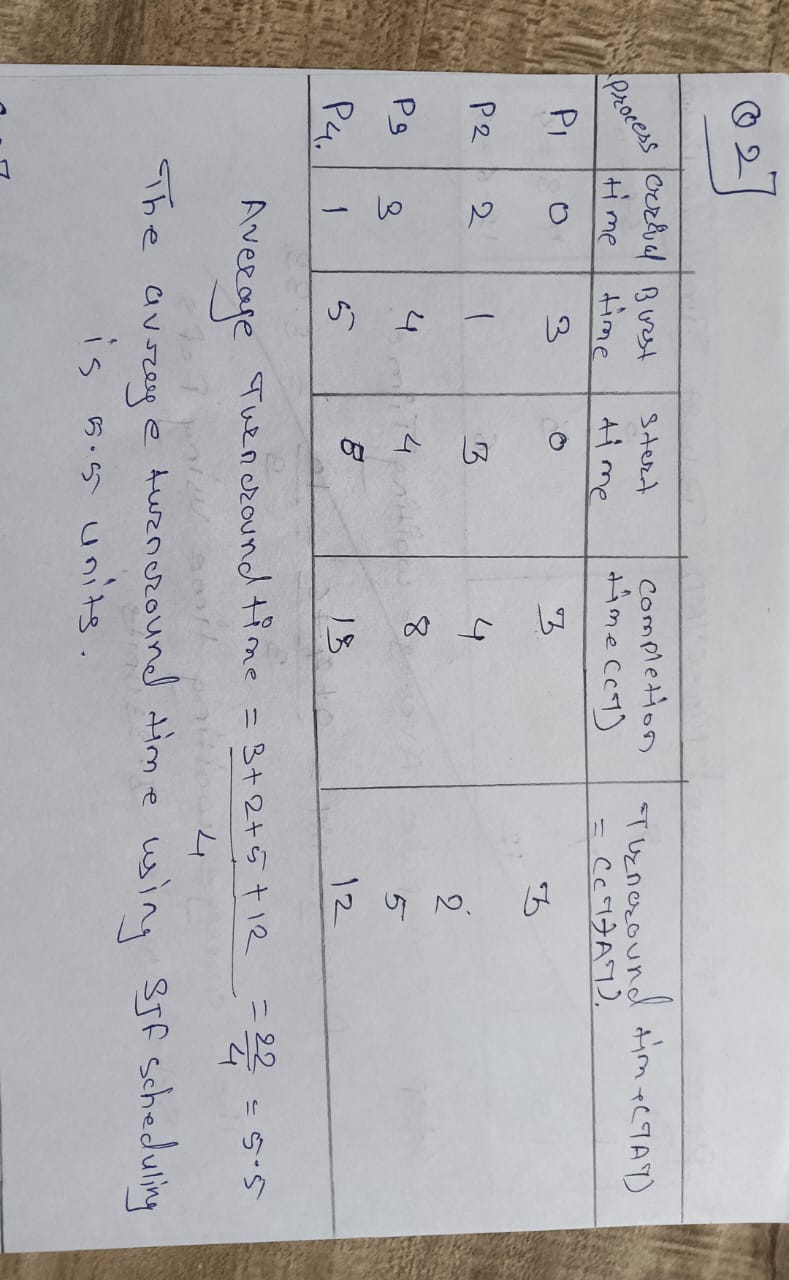 Q 2
process | arrival time | Burst time | Start time | completion time (CT) | Turnaround time (TAT) = (CT-AT).
P1 | 0 | 3 | 0 | 3 | 3
P2 | 2 | 1 | 3 | 4 | 2
P3 | 3 | 4 | 4 | 8 | 5
P4. | 1 | 5 | 8 | 13 | 12
Average Turnaround time = 3+2+5+12 / 4 = 22/4 = 5.5
The average turnaround time using SJF scheduling
is 5.5 units.